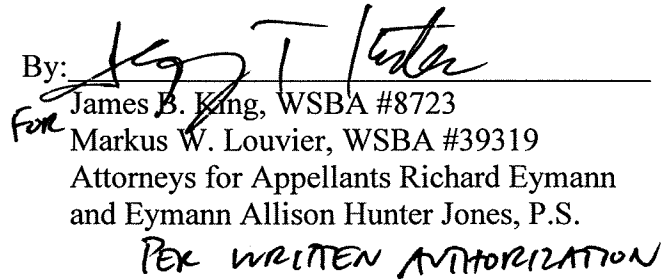 By:
For James B. King, WSBA #8723
Markus W. Louvier, WSBA #39319
Attorneys for Appellants Richard Eymann
and Eymann Allison Hunter Jones, P.S.
PER WRITTEN AUTHORIZATION